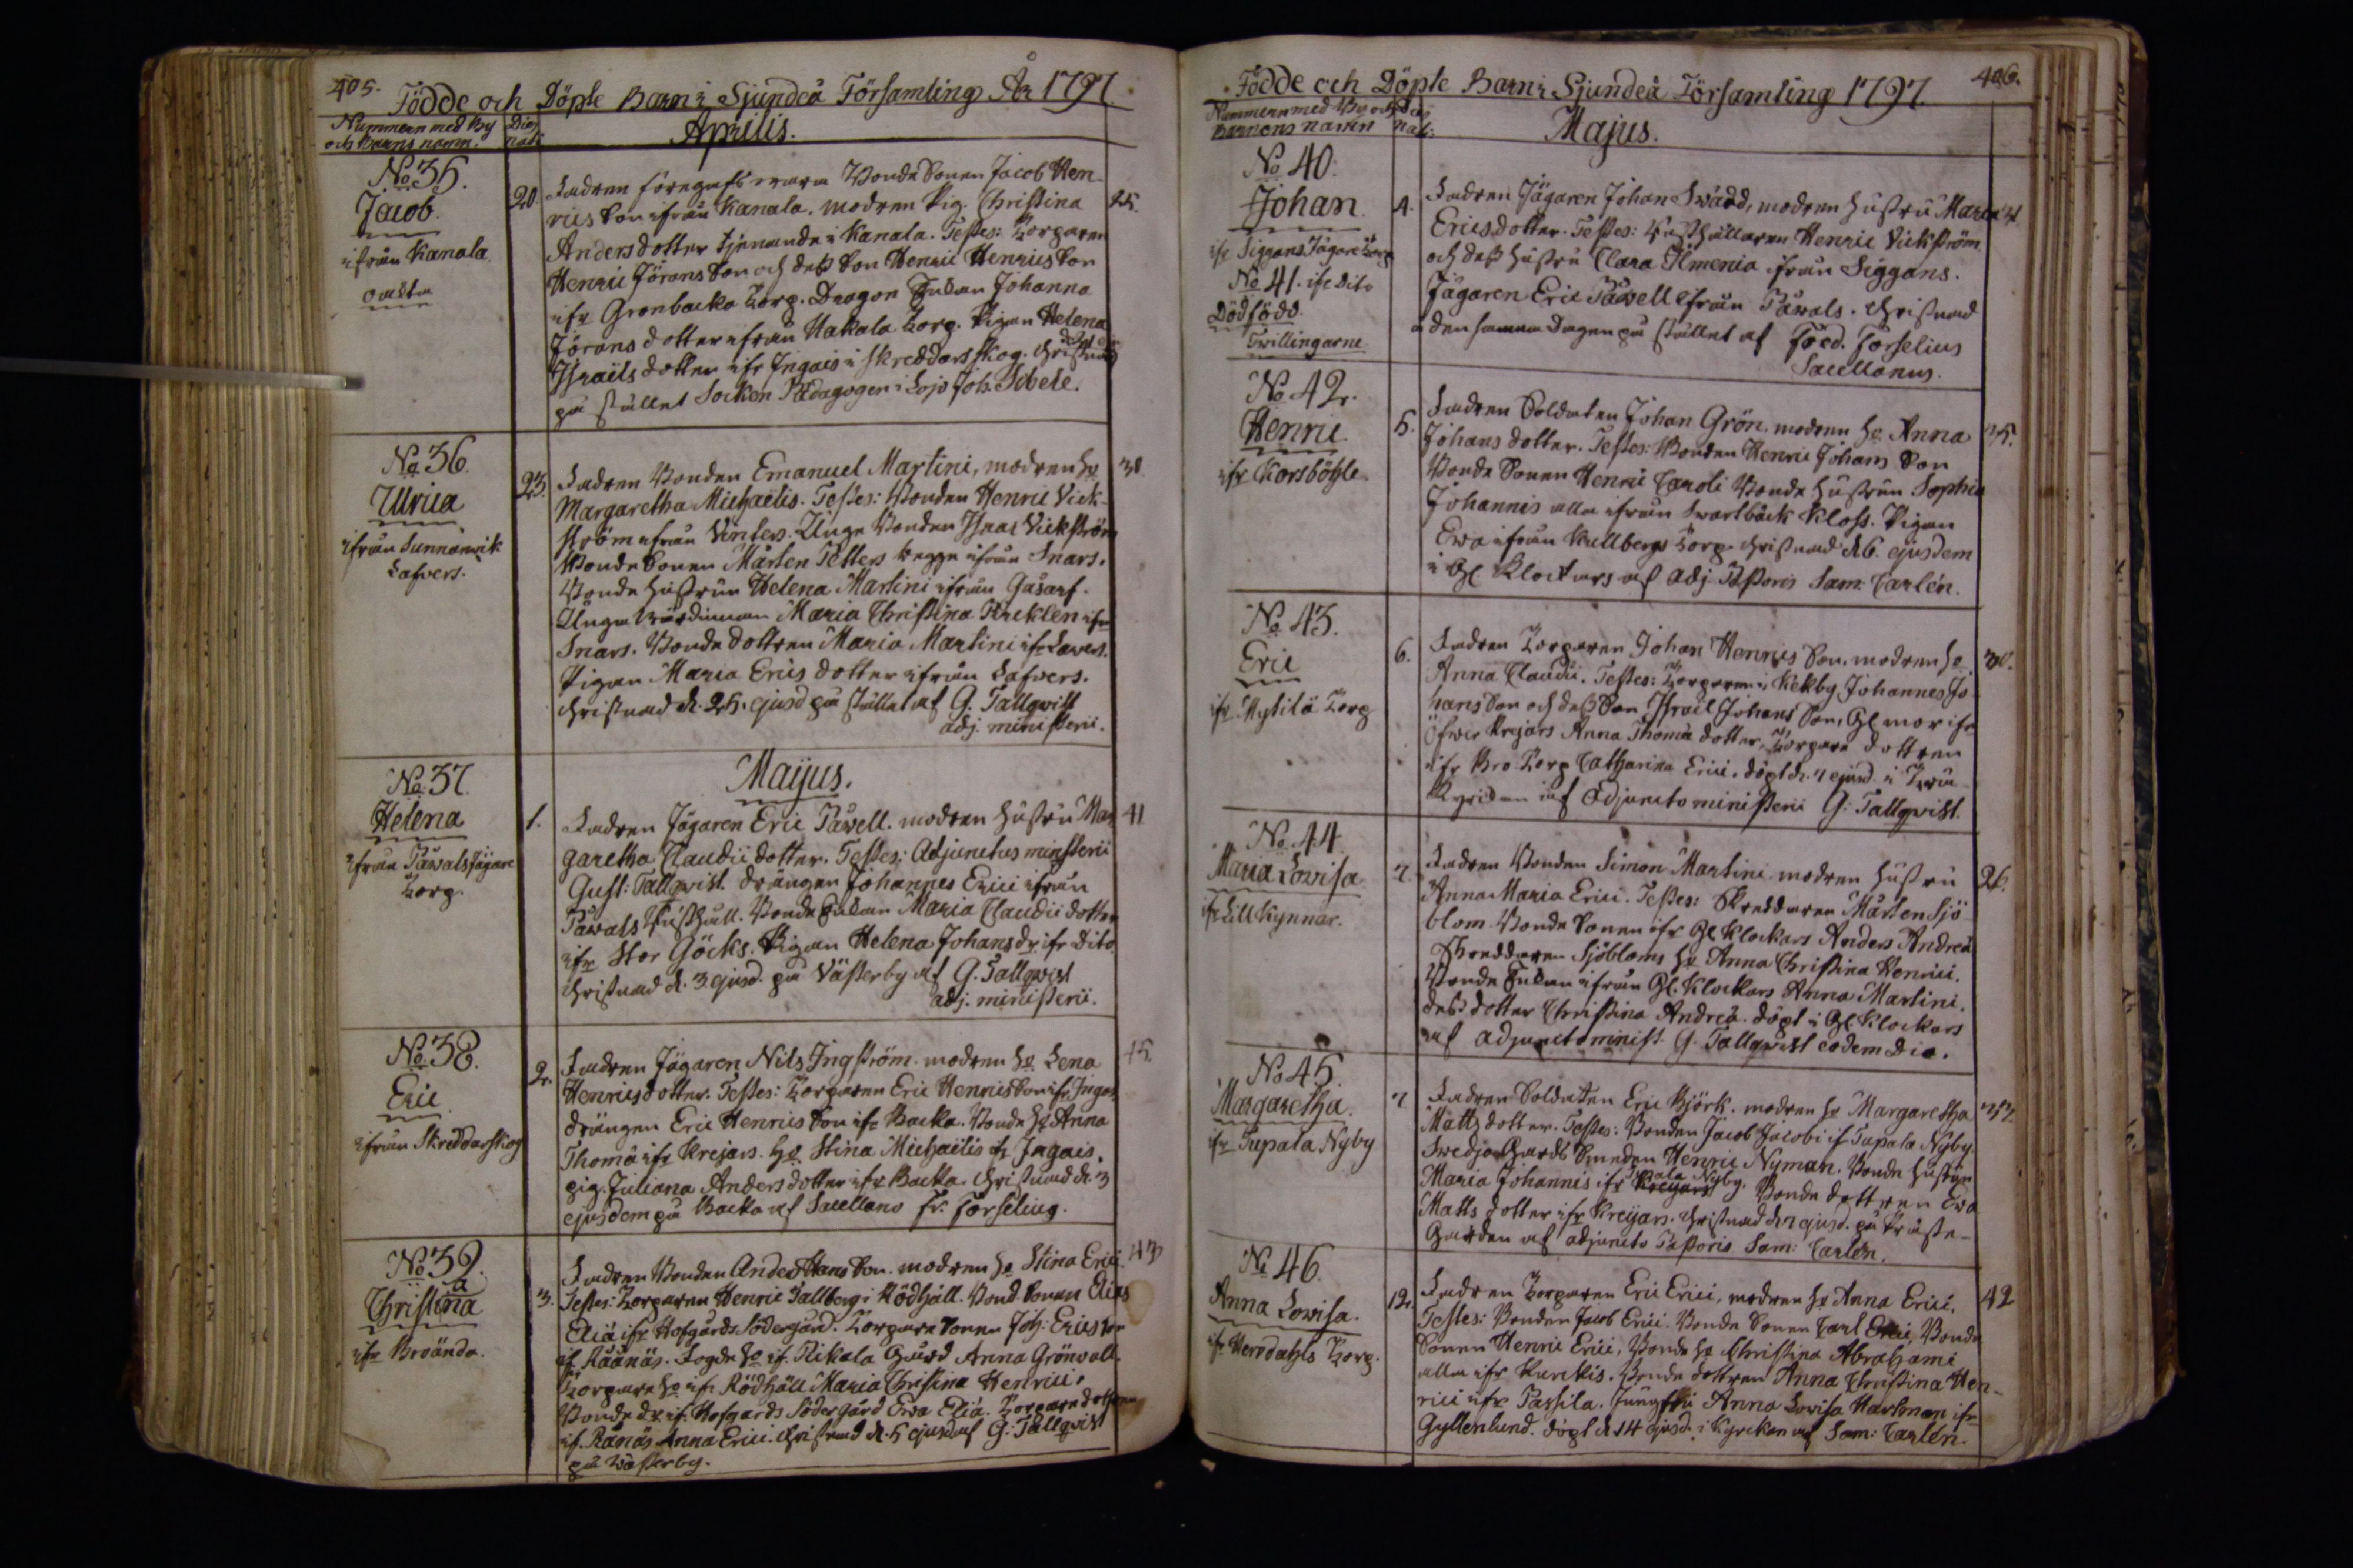 405.
Födde och Döpte Barn i Sjundeå Församling År 1797.
Nummern med By
och Barns namn.
Dies
nati
Aprilis.
No 35.
Jacob.
ifrån Kanala
oäckta
20.
Fadren föregafs vara Bonde Sonen Jacob Hen-
rics Son ifrån Kanala. modren Pig. Christina
25.
Anders dotter tjenande i Kanala. Testes: Torparen
Henric Jörans Son och dess Son Henric Henrics Son
ifr Gronbacka Torp. Dragon Enkan Johanna
Jörans dotter ifrån Kakala Torp. Pigan Helena
Israëls dotter ifr Ingais i Skreddarsskog. Christnad
på stället Socken Pædagogen i Lojo Joh. Sibele.
No 36.
Ulrica
ifrån Sunnanvik
Lafvers.
23.
Fadren Bonden Emanuel Martini, modren Ho
30.
Margaretha Michaëlis. Testes: Bonden Henric Vick-
ström ifrån Vinters. Unge Bonden Isaac Vickström
Bonde Sonen Mårten Petters begge ifrån Snars.
Bonde Hustrun Helena Martini ifrån Gåsarf.
Unga Värdinnan Maria Christina Flicklen ifr
Snars. Bonde dottren Maria Martini ifr Lavers.
Pigan Maria Erics dotter ifrån Lafvers.
Christnad d. 25. ejusd på stället af G. Tallqvist
adj. ministerii.
Maijus.
No 37.
Helena
ifrån Påwals Jägare
Torp.
1.
Fadren Jägaren Eric Påwell. modren Hustru Mar
41
garetha Claudii dotter. Testes: Adjunctus ministerii
Gust: Tallqvist. drängen Johannes Erici ifrån
Påwals Rusthåll. Bonde Enkan Maria Claudii dotter
ifr Stor Göcks. Pigan Helena Johans dr ifr Dito.
Christnad d. 3 ejusd. på Västerby af G. Tallqvist
adj. ministerii.
No 38.
Eric
ifrån Skreddarskog
2.
Fadren Jägaren Nils Ingström. modren Ho Lena
45
Henrics dotter. Testes: Torparen Eric Henrics Son ifr Ingas
drängen Eric Henrics Son ifr Backa. Bonde Ho Anna
Thomæ ifr Krejars. Ho Stina Michaëlis ifr Ingais.
pig. Juliana Anders dotter ifr Backa. Christnad d. 3
ejusdem på Backa af Sacellano Fr. Forselius.
No 39.
Christina
ifr Broända.
3.
Fadren Bonden Anders Hans Son. modren Ho Stina Erici.
43
Testes: Torparen Henric Tallberg i Rödhäll. Bond. Sonen Elias
Eliæ ifr Hofgårds Södergård. Torpare Sonen Joh: Erics Son
if. Råånäs. Fogde Ho if. Pikala Gård Anna Grönvall.
Torpare Ho ifr Rödhäll Maria Christina Henrici.
Bonde dr if. Hofgards Södergård Ewa Eliæ. Torpare dottren
if. Rånäs Anna Erici. Christnad d. 5 ejusd af G. Tallqvist
på Wästerby.
406.
Födde och Döpte Barn i Sjundeå Församling 1797.
Nummern med By och
Barnens namn
Dies
nat:
Majus.
No 40.
Johan
ifr Siggans Jägare Torp
No 41. ifr Dito
Dödfödd.
Tvillingarne
4.
Fadren Jägaren Johan Swärd, modren Hustru Maria
Ericsdotter. Testes: Rusthållaren Henric Vickström
och dess Hustru Clara Ilmenia ifrån Siggans.
Jägaren Eric Påwell ifrån Påwals. Christnad
den samma Dagen på stället af Fred. Forselius
Sacellanus.
No 42.
Henric
ifr Korsböhle.
5.
Fadren Soldaten Johan Grön, modren Ho Anna
35.
Johans dotter. Testes: Bonden Henric Johans Son
Bonde Sonen Henric Caroli Bonde Hustrun Sophia
Johannis alla ifrån Swartbäck Kloss. Pigan
Ewa ifrån Kullbergs Torp. Christnad d. 6. ejusdem
i Gl. Klockars af adj. Pastoris Sam. Carlén.
No 43.
Eric
ifr Mytilä Torp
6.
Fadren Torparen Johan Henrics Son. modren Ho
30.
Anna Claudii. Testes: Torparen i Kekby Johannes Jo-
hans Son och dess Son Israel Johans Son, Gl. mor ifr
Öfwer Krejars Anna Thomæ dotter, Torpare dottren
ifr Bro Torp Catharina Erici. döpt d. 7 ejusd. i
af Adjuncto ministerii G. Tallqvist.
No 44.
Maria Lovisa
ifr Lill Kynnar.
7.
Fadren Bonden Simon Martini. modren Hustru
26.
Anna Maria Erici. Testes: Skreddaren Mårten Sjö-
blom. Bonde Sonen ifr Gl. Klockars Anders Andreæ
Skreddaren Sjöbloms Ho Anna Christina Henrici.
Bonde Enkan ifrån Gl. Klockars Anna Martini.
dess dotter Christina Andreæ. döpt i Gl. Klockars
af adjuncto minist. G. Tallqvist eodem Die.
No 45.
Margaretha.
ifr Tupala Nyby
7
Fadren Soldaten Eric Björk. modren Ho Margaretha
33.
Matts dotter. Testes: Bonden Jacob Jacobi if Tupala Nyby.
Swedja Gårds Smeden Henric Nyman. Bonde Hustrun
Maria Johannis ifr Tupala Nyby. Bonde dottren Ewa
Matts dotter ifr Kreijars. Christnad d. 7 ejusd. på Präste-
Garden af adjuncto Pastoris Sam: Carlén.
No 46.
Anna Lovisa.
ifr Herrdahls Torp.
12.
Fadren Torparen Eric Erici, modren Ho Anna Erici.
42
Testes: Bonden Jacob Erici. Bonde Sonen Carl Erici, Bonde
Sonen Henric Erici, Bonde Ho Christina Abrahami
alla ifr Kunkis. Bonde dottren Anna Christina Hen-
rici ifr Passila. Jungfru Anna Lovisa Hartman ifr
Gyllenlund. döpt d. 14 ejusd. i Kyrckan af Sam: Carlén.